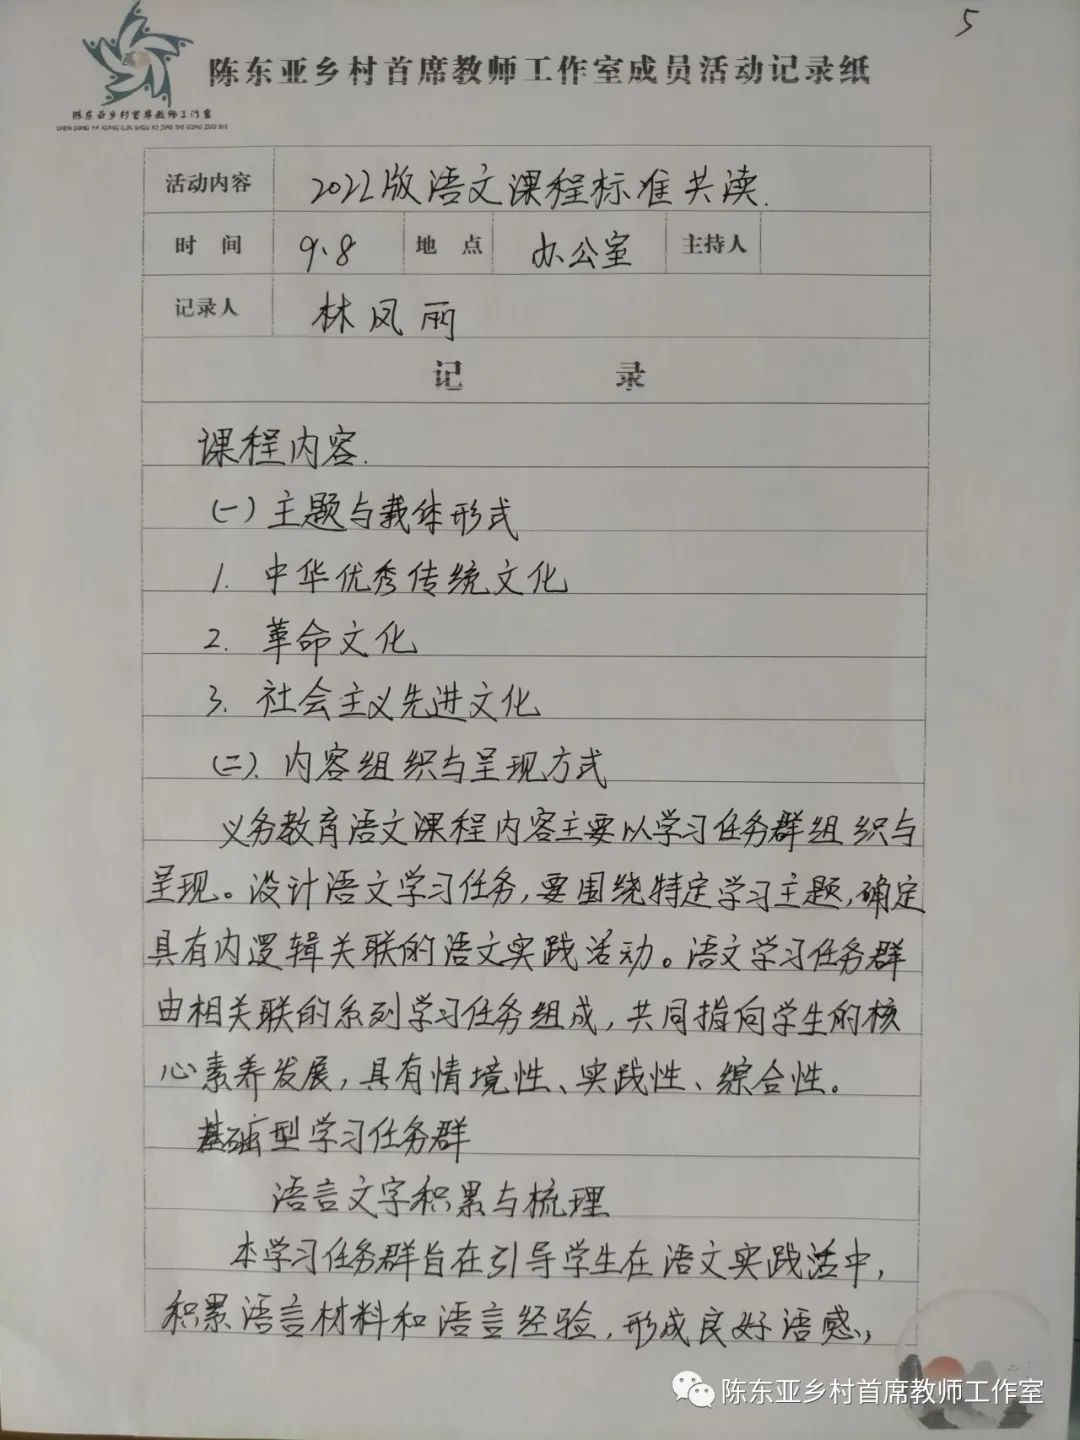 5
陈东亚乡村首席教师工作室成员活动记录纸
陈东亚乡村首席教师工作室
CHEN DONG YA XIANG CUN SHOU XI JIAO SHI GONG ZUO SHI
活动内容 2022版语文课程标准共读.
时 间 9.8 地 点 办公室 主持人
记录人 林凤丽
记 录
课程内容.
(一)主题与载体形式
1. 中华优秀传统文化
2. 革命文化
3. 社会主义先进文化
(二). 内容组织与呈现方式
义务教育语文课程内容主要以学习任务群组织与
呈现。设计语文学习任务,要围绕特定学习主题,确定
具有内逻辑关联的语文实践活动。语文学习任务群
由相关联的系列学习任务组成,共同指向学生的核
心素养发展,具有情境性、实践性、综合性。
基础型学习任务群
语言文字积累与梳理
本学习任务群旨在引导学生在语文实践活中,
积累语言材料和语言经验,形成良好语感,
陈东亚乡村首席教师工作室